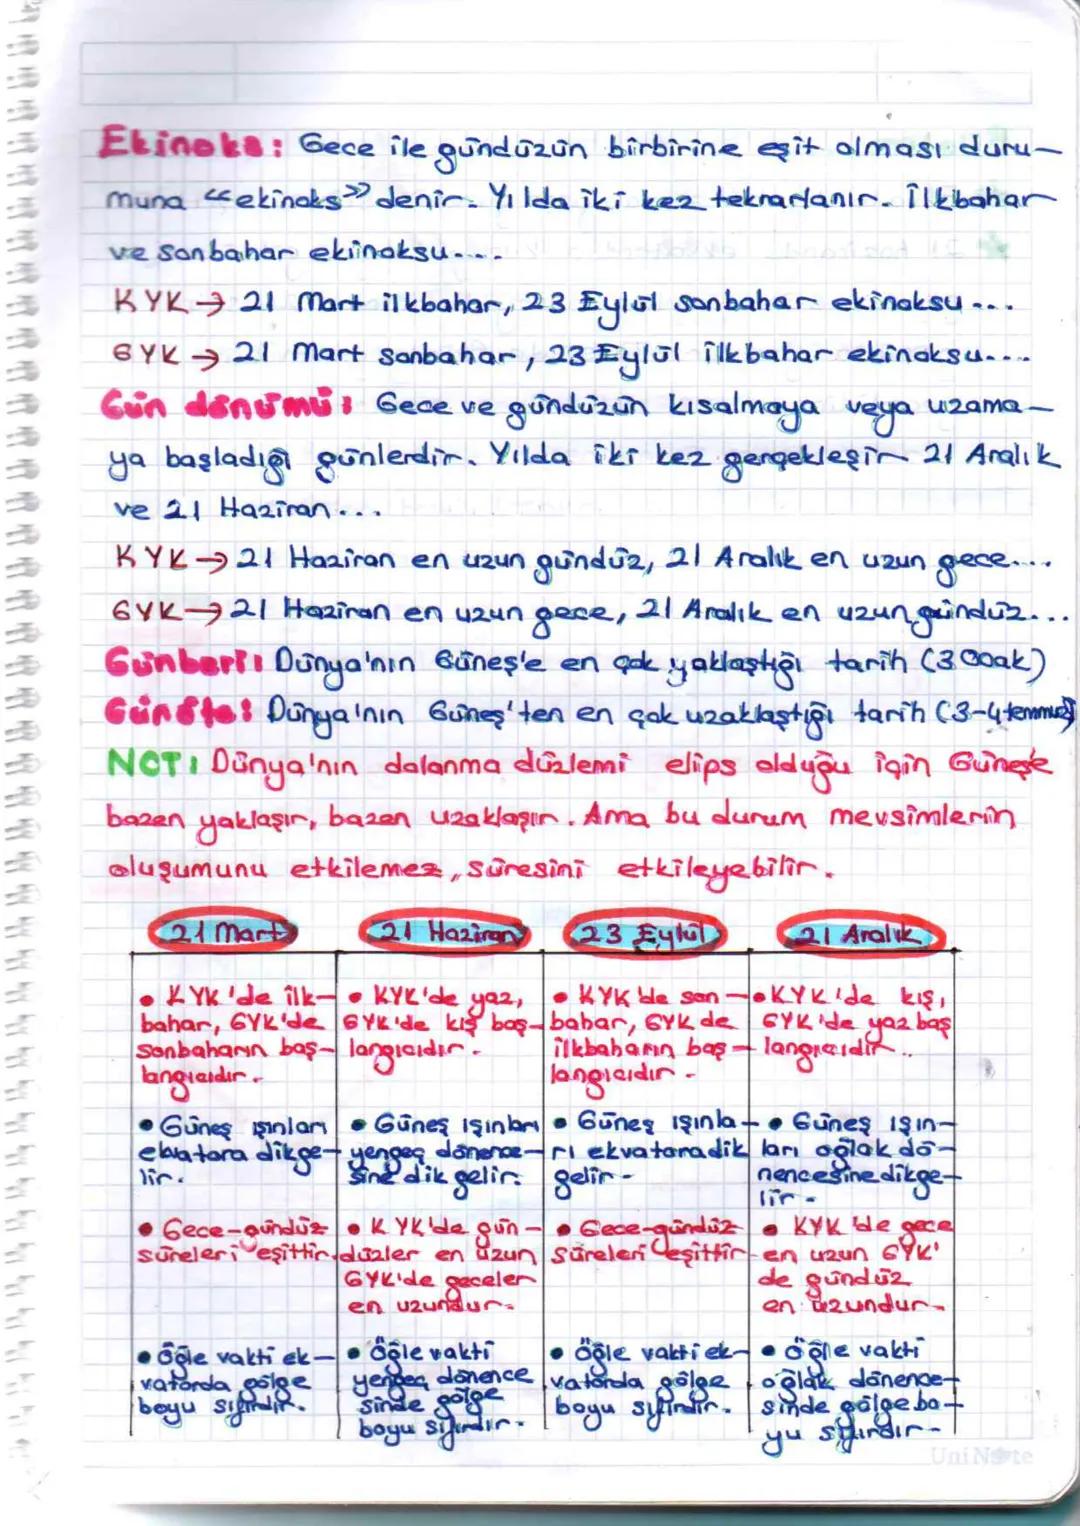 Ekinoks: Gece ile gündüzün birbirine eşit olması duru-
muna «ekinoks» denir. Yılda iki kez tekrarlanır. İlkbahar
ve sonbahar ekinoksu....
KYK → 21 Mart ilkbahar, 23 Eylül sonbahar ekinoksu...
GYK → 21 Mart sonbahar, 23 Eylül ilkbahar ekinoksu....
Gün dönümü: Gece ve gündüzün kısalmaya veya uzama-
ya başladığı günlerdir. Yılda iki kez gerçekleşir 21 Aralık
ve 21 Haziran...
KYK → 21 Haziran en uzun gündüz, 21 Aralık en uzun gece...
GYK → 21 Haziran en uzun gece, 21 Aralık en uzun gündüz...
Günberi: Dünya'nın Güneş'e en çok yaklaştığı tarih (3 Ocak)
Günöte: Dünya'nın Güneş'ten en çok uzaklaştığı tarih (3-4 temmuz)
NOT: Dünya'nın dolanma düzlemi elips olduğu için Güneşe
bazen yaklaşır, bazen uzaklaşır. Ama bu durum mevsimlerin
oluşumunu etkilemez, süresini etkileyebilir.
21 Mart
• KYK'de ilk-
bahar, GYK'de
sonbaharın baş-
langıcıdır.
• Güneş ışınları
ekvatora dikge-
lir.
• Gece-gündüz
süreleri eşittir.
• Öğle vakti ek-
vatorda gölge
boyu sıfırdır.
21 Haziran
• KYK'de yaz,
GYK'de kış baş-
langıcıdır.
• Güneş ışınları
yengeç dönence-
sine dik gelir.
• KYK'de gün-
düzler en uzun
GYK'de geceler
en uzundur.
• Öğle vakti
yengeç dönence
sinde gölge
boyu sıfırdır.
23 Eylül
• KYK'de son-
bahar, GYK de
ilkbaharın baş-
langıcıdır.
• Güneş ışınla-
rı ekvatora dik
gelir.
• Gece-gündüz
süreleri eşittir.
• Öğle vakti ek-
vatorda gölge
boyu sıfırdır.
21 Aralık
• KYK'de kış,
GYK'de yaz baş
langıcıdır..
• Güneş ışın-
ları oğlak dö-
nencesine dikge-
lir.
• KYK'de gece
en uzun GYK'
de gündüz
en uzundur.
• Öğle vakti
oğlak dönence-
sinde gölge bo-
yu sıfırdır.
UniNote